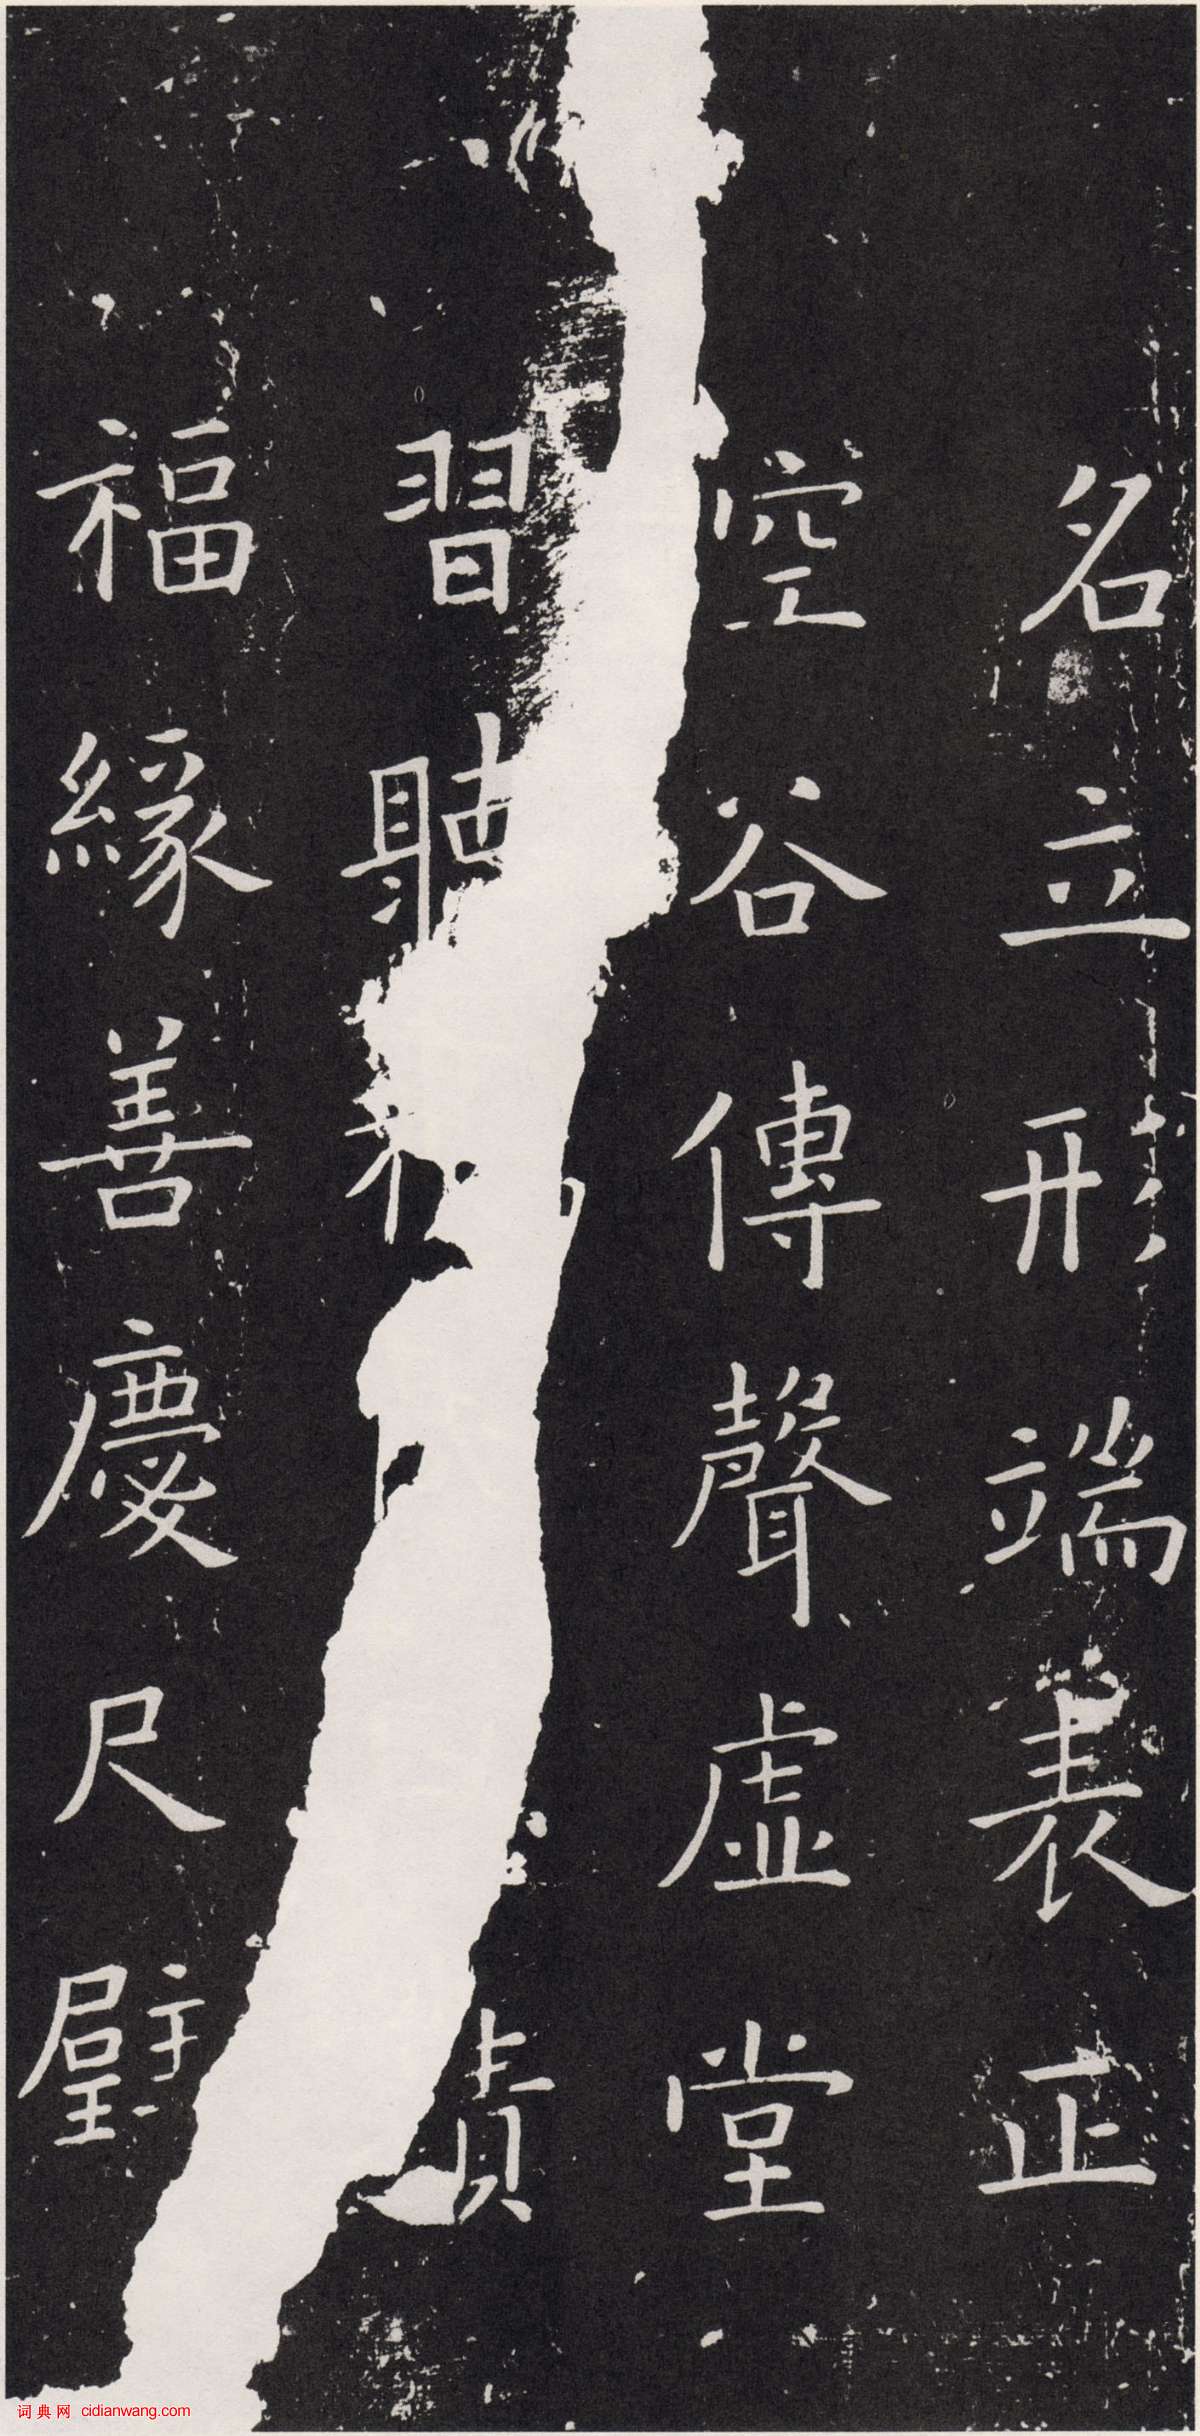 名立形端表正
空谷傳聲虛堂
習聽積
福緣善慶尺璧
词典网 cidianwang.com